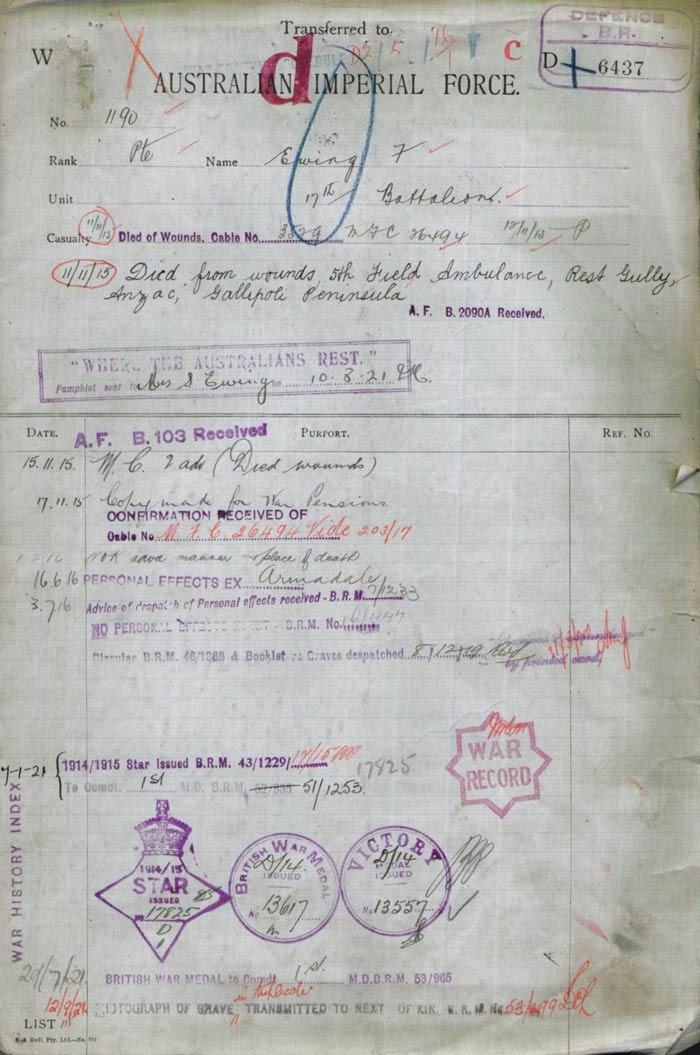 Transferred to
DEFENCE
B.R.
W
c
D 6437
d
AUSTRALIAN IMPERIAL FORCE.
No. 1190
Rank Pte Name Ewing F
Unit 17th Battalion
Casualty 11/11/15 Died of Wounds. Cable No. 3529 MFC 26494 12/11/15 P
11/11/15 Died from wounds, 5th Field Ambulance, Rest Gully,
Anzac, Gallipoli Peninsula
A. F. B. 2090A Received.
"WHERE THE AUSTRALIANS REST."
Pamphlet sent to Mrs S Ewing on 10.8.21
DATE. PURPORT. REF. NO.
A. F. B. 103 Received
15.11.15. M.C. 2 adv (Died wounds)
17.11.15 Copy made for War Pensions
CONFIRMATION RECEIVED OF
Cable No. M.F.C. 26494 Vide 203/17
NOK advd manner & place of death
16.6.16 PERSONAL EFFECTS EX Armadale
3.7.16 Advice of despatch of Personal effects received - B.R.M.
NO PERSONAL EFFECTS - B.R.M. No.
Circular B.R.M. 46/1365 & Booklet re Graves despatched
by printed card
WAR
RECORD
7-1-21
1914/1915 Star Issued B.R.M. 43/1229/
17825
To Comdt. 1st M.D. B.R.M. 51/1253.
WAR HISTORY INDEX
1914/15
STAR
ISSUED
No 17825
D
1
BRITISH WAR MEDAL
D/14
ISSUED
No. 13617
VICTORY
MEDAL
D/14
ISSUED
No. 13557
29/7/21 BRITISH WAR MEDAL to Comdt 1st M.D. B.R.M. 53/965
in triplicate
12/9/21 PHOTOGRAPH OF GRAVE TRANSMITTED TO NEXT OF KIN. B.R.M. No. 53/299
LIST